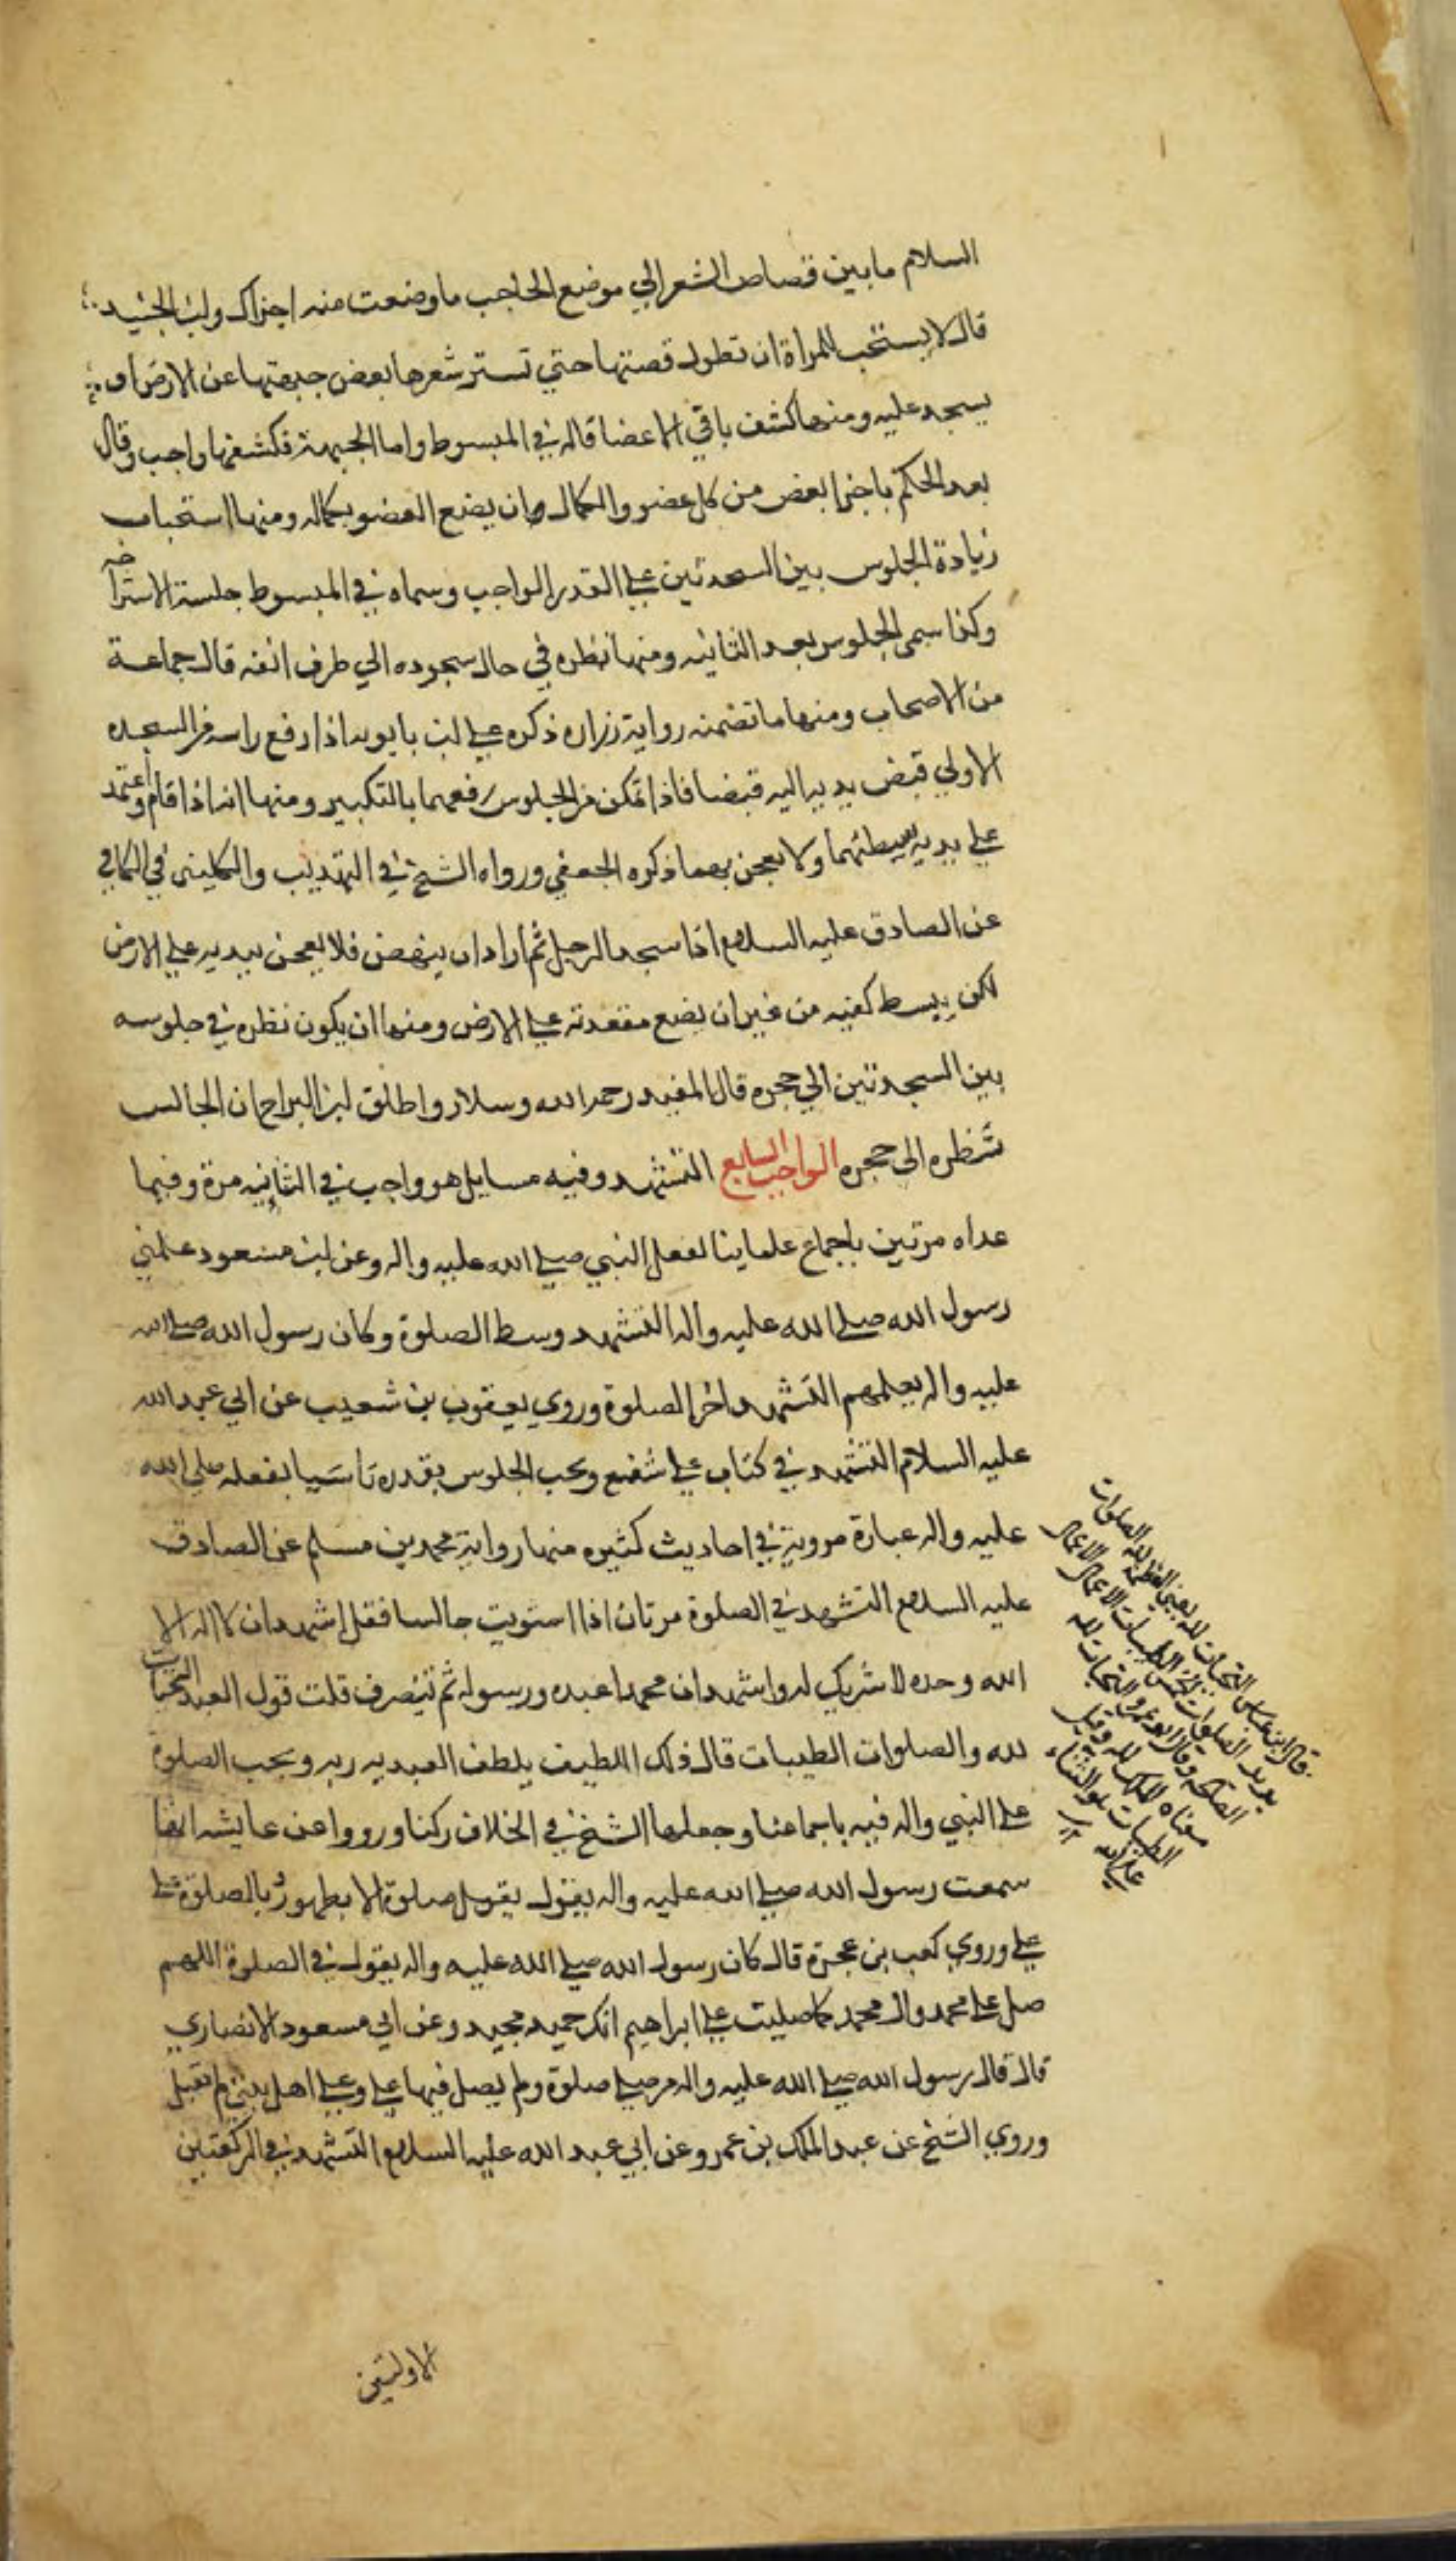 السلام ما بين قصاص الشعر الي موضع الحاجب ما وضعت منه اجزاك ولبن الجنيد
قال لا يستحب للمراة ان تطول قصتها حتي تستر شعرها بعض جبهتها عن الارض او
يسجد عليه ومنها كشف باقي الاعضا قاله في المبسوط واما الجبهة فكشفها واجب وقال
بعد الحكم باجزا بعض من كل عضو والكمال ان يضع العضو بكماله ومنها استحباب
زيادة الجلوس بين السجدتين علي القدر الواجب وسماه في المبسوط جلسة الاستراحه
وكذا سمي الجلوس بعد الثانيه ومنها نظره في حال سجوده الي طرف انفه قال جماعة
من الاصحاب ومنها ما تضمنه رواية زراره ذكره علي لبن بابويه اذا رفع راسه من السجده
الاولي قبض يديه اليه قبضا فاذا تمكن من الجلوس رفعهما بالتكبير ومنها انه اذا قام واعتمد
علي يديه يبسطهما ولا يعجن بهما ذكره الجعفي ورواه الشيخ في التهذيب والكليني في الكافي
عن الصادق عليه السلام اذا سجد الرجل ثم اراد ان ينهض فلا يعجن بيديه علي الارض
لكن يبسط كفيه من غير ان يضع مقعدته علي الارض ومنها ان يكون نظره في جلوسه
بين السجدتين الي حجره قال المفيد رحمه الله وسلار واطلق لبن البراج ان الجالس
نظره الي حجره الواجب السابع التشهد وفيه مسايل هو واجب في الثانيه مرة وفيما
عداه مرتين باجماع علماينا لفعل النبي صلي الله عليه واله وعن لبن مسعود علمني
رسول الله صلي الله عليه واله التشهد وسط الصلوة وكان رسول الله صلي الله
عليه واله يعلمهم التشهد اخر الصلوة وروي يعقوب بن شعيب عن ابي عبد الله
عليه السلام التشهد في كتاب علي شفع ويجب الجلوس بقدره تاسيا بفعله صلي الله
عليه واله عبارة مروية في احاديث كثيره منها رواية محمد بن مسلم عن الصادق
عليه السلام التشهد في الصلوة مرتان اذا استويت جالسا فقل اشهد ان لا اله الا
الله وحده لا شريك له واشهد ان محمدا عبده ورسوله ثم تنصرف قلت قول العبد التحيات
لله والصلوات الطيبات قال ذلك اللطيف يلطف العبد به ربه ويجب الصلوة
علي النبي واله فيه باجماعنا وجعلها الشيخ في الخلاف ركنا ورووا عن عايشه انها
سمعت رسول الله صلي الله عليه واله يقول يقبل صلوة الا بطهور وبالصلوة علي
علي وروي كعب بن عجرة قال كان رسول الله صلي الله عليه واله يقول في الصلوة اللهم
صل علي محمد وال محمد كما صليت علي ابراهيم انك حميد مجيد وعن ابي مسعود الانصاري
قال قال رسول الله صلي الله عليه واله من صلي صلوة ولم يصل فيها علي وعلي اهل بيتي لم تقبل
وروي الشيخ عن عبد الملك بن عمرو عن ابي عبد الله عليه السلام التشهد في الركعتين
الاولتين
قال ابن عباس التحيات لله يعني العظمة لله الصلوات
يريد الصلوات الخمس الطيبات الاعمال
الصالحة وقال ابو عمرو التحيات لله
معناه الملك لله وقيل
الطيبات هو الثناء
علي الله